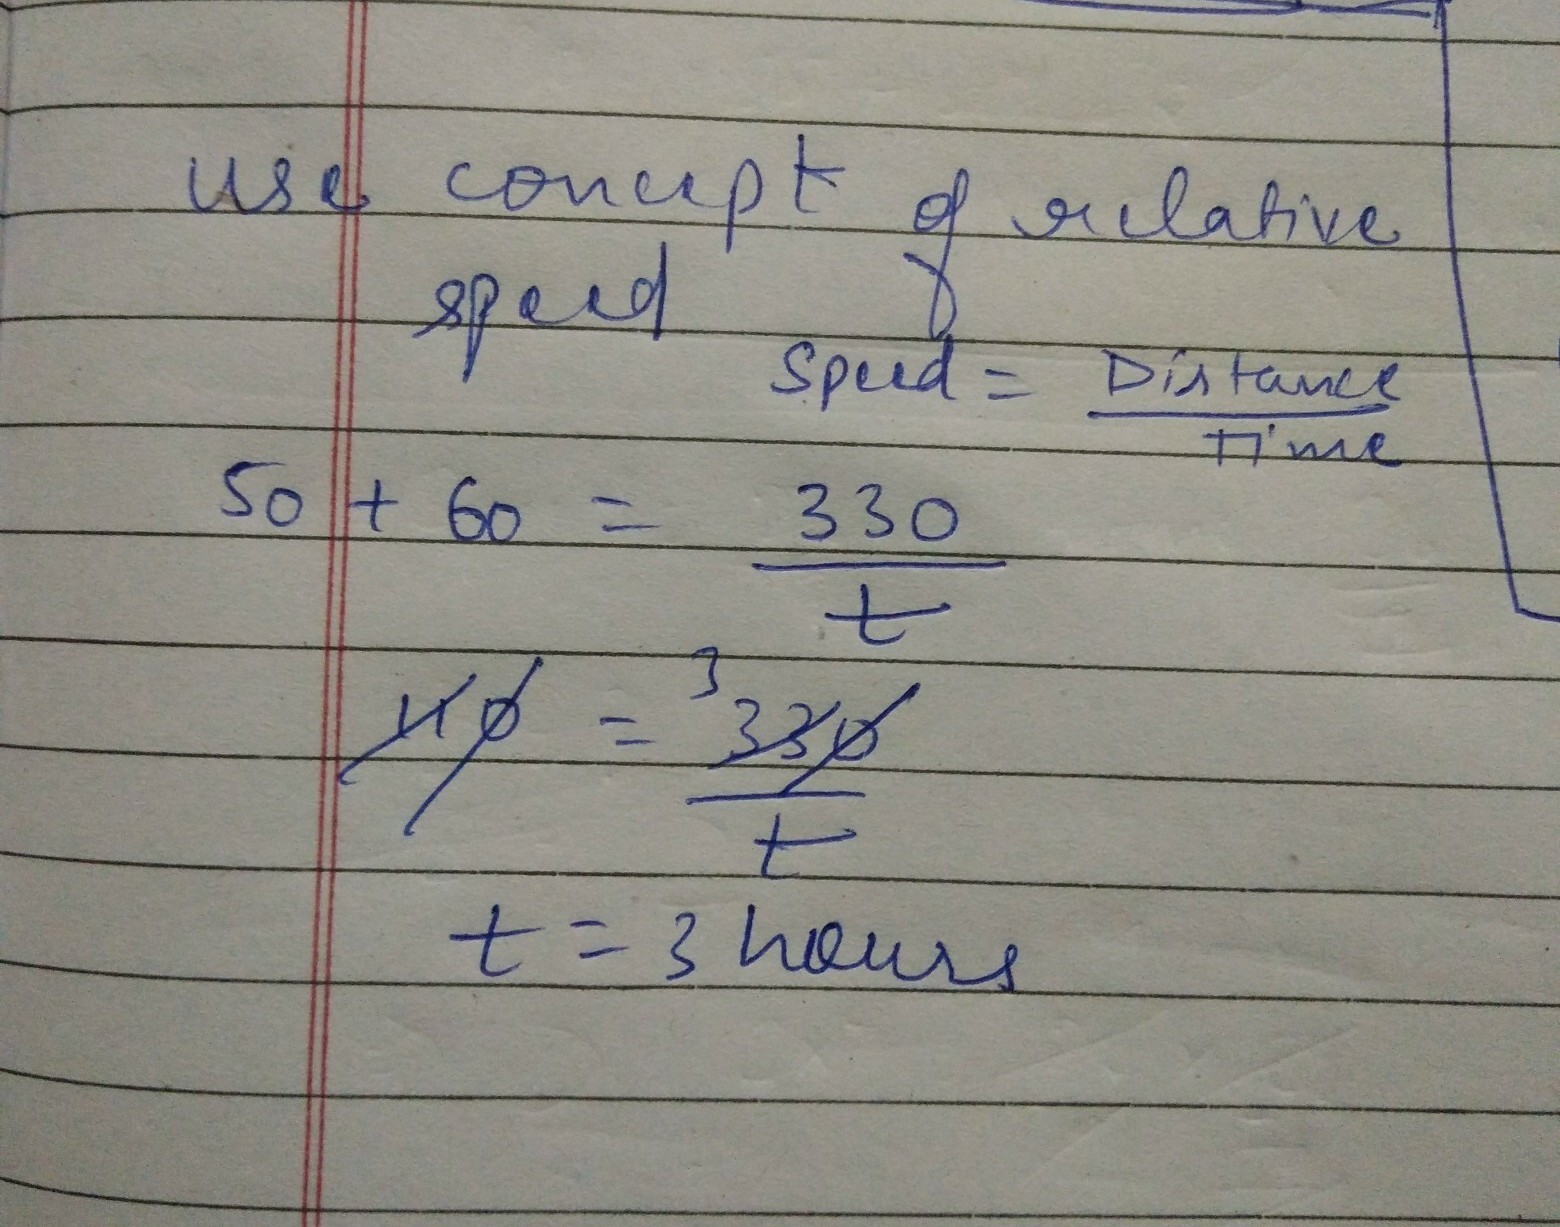 use concept of relative
speed
Speed = Distance
Time
50 + 60 = 330
t
110 = 3 330
t
t = 3 hours